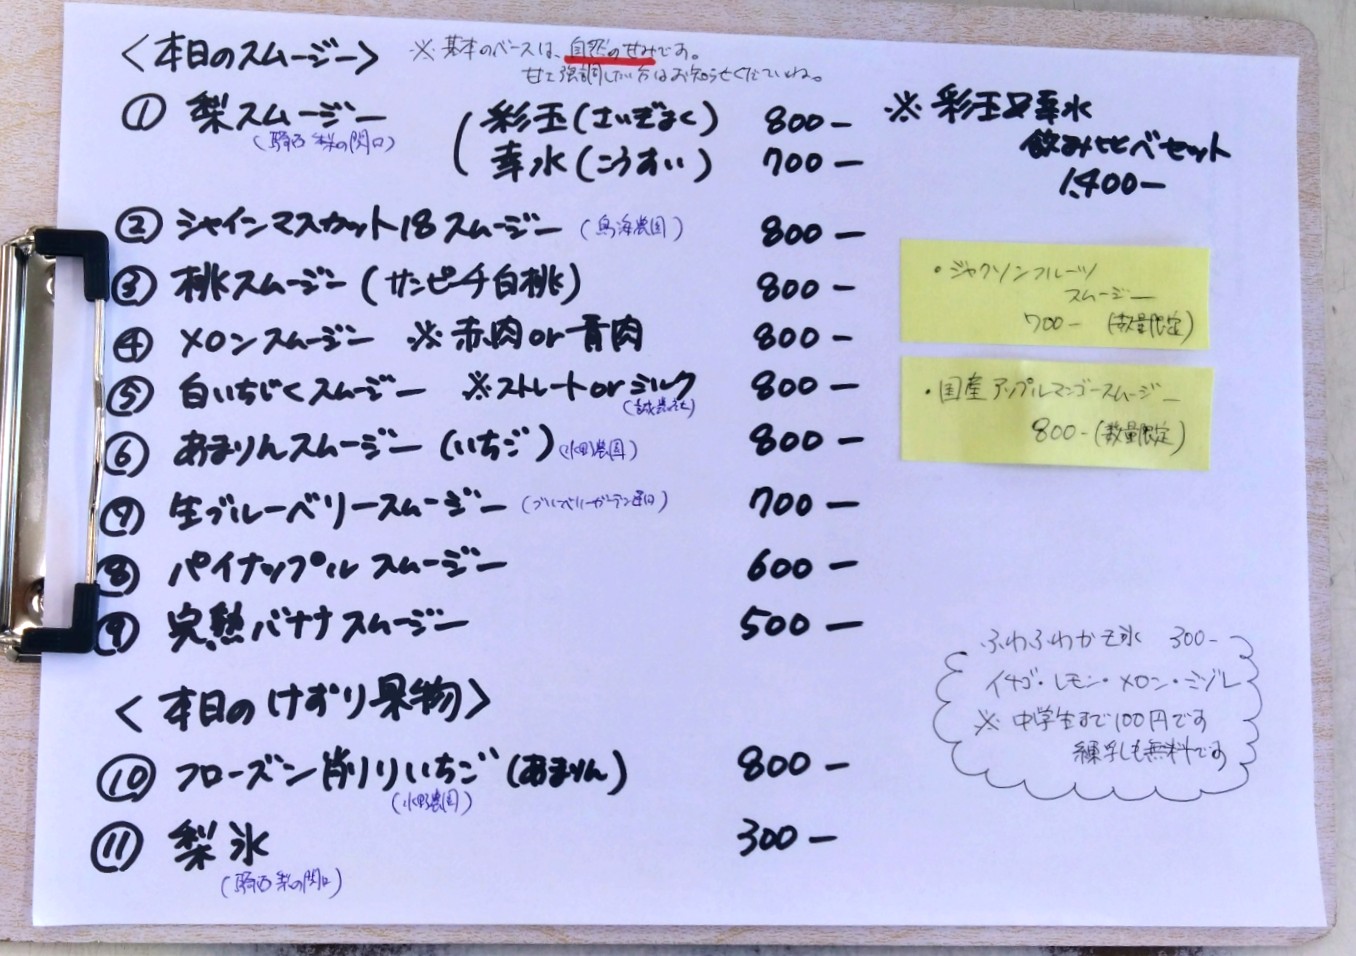 <本日のスムージー>
※基本のベースは、自然の甘みです。
甘さ強調したい方はお知らせくださいね。
① 梨スムージー
(騎西 梨の関口)
彩玉(さいぎょく) 800-
幸水(こうすい) 700-
※彩玉又幸水
飲み比べセット
1,400-
② シャインマスカット18スムージー (鳥海農園) 800-
③ 桃スムージー(サンピーチ白桃) 800-
④ メロンスムージー ※赤肉or青肉 800-
⑤ 白いちじくスムージー ※ストレートorミルク 800-
⑥ あまりんスムージー(いちご) 800-
⑦ 生ブルーベリースムージー 700-
⑧ パイナップルスムージー 600-
⑨ 完熟バナナスムージー 500-
・ジャクソンフルーツ
スムージー
700- (数量限定)
・国産アップルマンゴースムージー
800-(数量限定)
<本日のけずり果物>
⑩ フローズン削りいちご(あまりん) 800-
⑪ 梨氷 300-
(騎西 梨の関口)
ふわふわかき氷 300-
イチゴ・レモン・メロン・ミゾレ
※中学生まで100円です
練乳も無料です